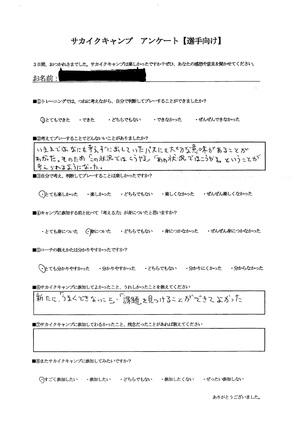 サカイクキャンプ　アンケート【選手向け】
3日間、おつかれさまでした。サカイクキャンプは楽しかったですか？ぜひ、あなたの感想や意見を聞かせてください。
お名前：
■①トレーニングでは、つねに考えながら、自分で判断してプレーすることができましたか？
・とてもできた　・できた　・どちらでもない　・できなかった　・ぜんぜんできなかった
■②考えてプレーすることでどんないいことがありましたか？
いままではなにも考えずにだしていたパスにも大切な意味があることが
わかった。そのため「この状況ではこうする」「あの状況ではこうする」ということが
考えられるようになった。
■③自分で考え、判断してプレーすることは楽しかったですか？
・とても楽しかった　・楽しかった　・どちらでもない　・楽しくなかった　・ぜんぜん楽しくなかった
■④キャンプに参加する前と比べて「考える力」が身についたと思いますか？
・とても身についた　・身についた　・どちらでもない　・身につかなかった　・ぜんぜん身につかなかった
■⑤コーチの教えかたは分かりやすかったですか？
・とても分かりやすかった　・分かりやすかった　・どちらでもない　・分かりにくかった　・分からなかった
■⑥サカイクキャンプに参加してよかったこと、うれしかったことを教えてください
新たに、うまくできないこと・「課題」を見つけることができてよかった
■⑦サカイクキャンプに参加してわるかったこと、残念だったことがあれば教えてください
■⑧またサカイクキャンプに参加してみたいですか？
・すごく参加したい　・参加したい　・どちらでもない　・参加したくない　・ぜったい参加しない
ありがとうございました。